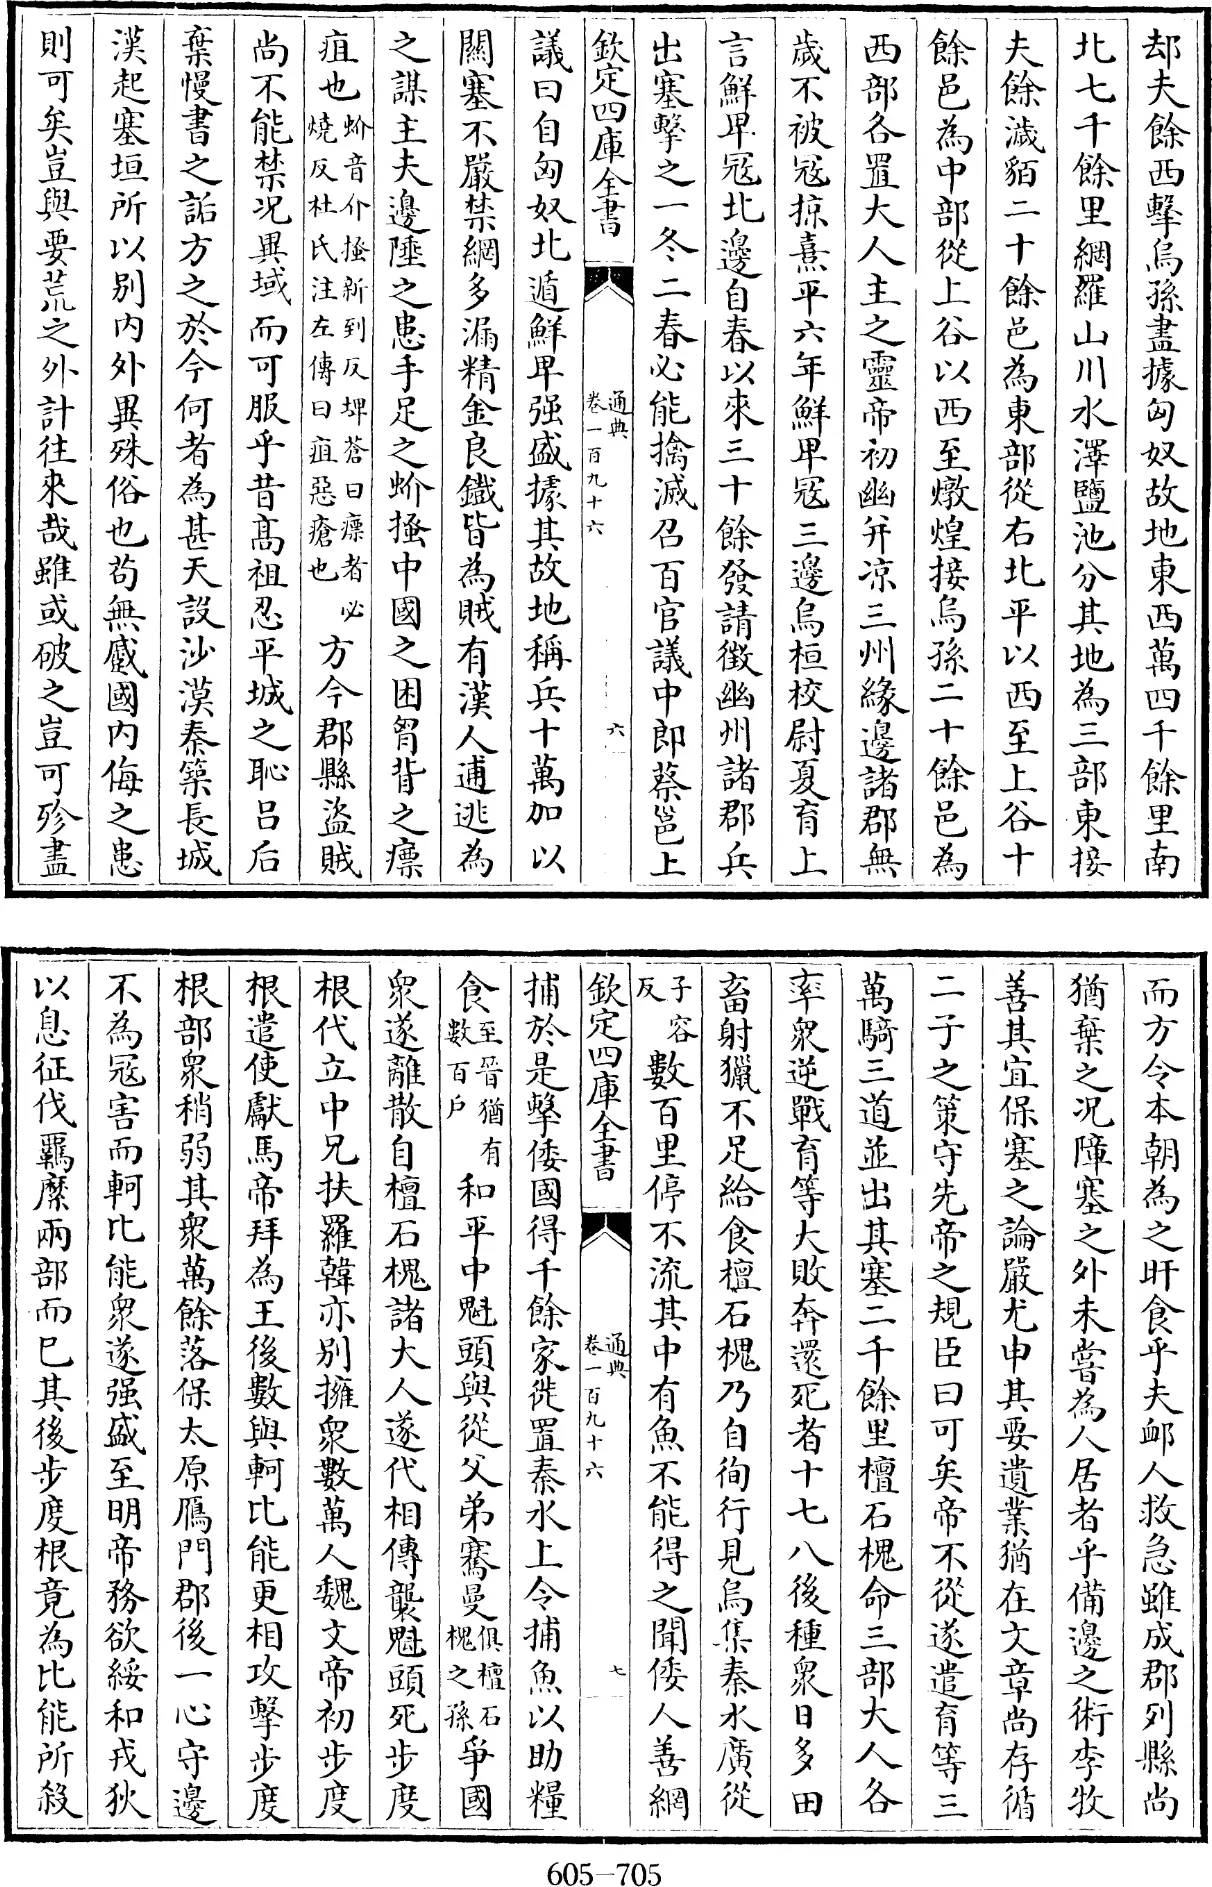 却夫餘西擊烏孫盡據匈奴故地東西萬四千餘里南
北七千餘里網羅山川水澤鹽池分其地為三部東接
夫餘濊貊二十餘邑為東部從右北平以西至上谷十
餘邑為中部從上谷以西至燉煌接烏孫二十餘邑為
西部各置大人主之靈帝初幽并凉三州緣邊諸郡無
歲不被冦掠熹平六年鮮卑冦三邊烏桓校尉夏育上
言鮮卑冦北邊自春以來三十餘發請徵幽州諸郡兵
出塞擊之一冬二春必能擒滅召百官議中郎蔡邕上
欽定四庫全書
通典
卷一百九十六
六
議曰自匈奴北遁鮮卑强盛據其故地稱兵十萬加以
關塞不嚴禁網多漏精金良鐵皆為賊有漢人逋逃為
之謀主夫邊陲之患手足之蚧搔中國之困胷背之瘭
疽也蚧音介搔新到反埤蒼曰瘭者必燒反杜氏注左傳曰疽惡瘡也方今郡縣盜賊
尚不能禁况異域而可服乎昔髙祖忍平城之恥吕后
棄慢書之詬方之於今何者為甚天設沙漠秦築長城
漢起塞垣所以别内外異殊俗也茍無蹙國内侮之患
則可矣豈與要荒之外計往來哉雖或破之豈可殄盡
而方令本朝為之旰食乎夫卹人救急雖成郡列縣尚
猶棄之况障塞之外未嘗為人居者乎備邊之術李牧
善其宜保塞之論嚴尤申其要遺業猶在文章尚存循
二子之策守先帝之規臣曰可矣帝不從遂遣育等三
萬騎三道並出其塞二千餘里檀石槐命三部大人各
率衆逆戰育等大敗奔還死者十七八後種衆日多田
畜射獵不足給食檀石槐乃自徇行見烏集秦水廣從
子容反數百里停不流其中有魚不能得之聞倭人善網
欽定四庫全書
通典
卷一百九十六
七
捕於是擊倭國得千餘家徙置秦水上令捕魚以助糧
食至晉猶有數百戶和平中魁頭與從父弟騫曼俱檀石槐之孫爭國
衆遂離散自檀石槐諸大人遂代相傳襲魁頭死步度
根代立中兄扶羅韓亦别擁衆數萬人魏文帝初步度
根遣使獻馬帝拜為王後數與軻比能更相攻擊步度
根部衆稍弱其衆萬餘落保太原鴈門郡後一心守邊
不為冦害而軻比能衆遂强盛至明帝務欲綏和戎狄
以息征伐羈縻兩部而已其後步度根竟為比能所殺
605-705